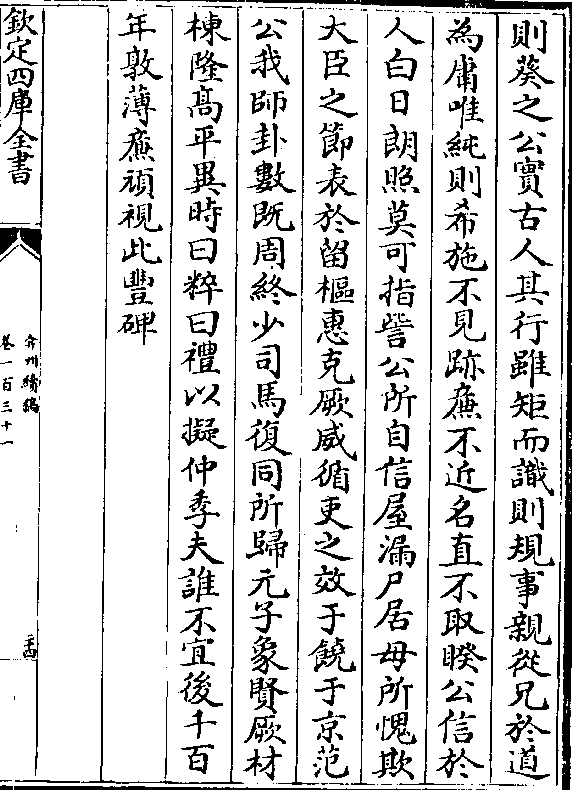 則葵之公實古人其行雖矩而識則規事親從兄於道
為庸唯純則希施不見跡㢘不近名直不取睽公信於
人白日朗照莫可指訾公所自信屋漏尸居毋所愧欺
大臣之節表於留樞惠克厥威循吏之效于饒于京范
公我師卦數既周終少司馬復同所歸元子象賢厥材
棟隆髙平異時曰粹曰禮以擬仲季夫誰不宜後千百
年敦薄㢘頑視此豐碑
欽定四庫全書
弇州續稿
卷一百三十一